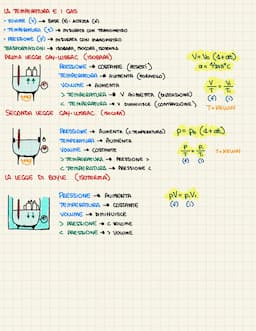 LA TEMPERATURA E I GAS
• VOLUME (V) → BASE (S) · ALTEZZA (h)
• TEMPERATURA (T) → MISURATA CON TERMOMETRO
• PRESSIONE (P) → MISURATA CON MANOMETRO
TRASFORMAZIONI → ISOBARA, ISOCORA, ISOTERMA
PRIMA LEGGE GAY-LUSSAC (ISOBARA)
PRESSIONE → COSTANTE (PESETTI)
TEMPERATURA → AUMENTA (FORNELLO)
VOLUME → AUMENTA
> TEMPERATURA → V AUMENTA (DILATAZIONE)
< TEMPERATURA → V DIMINUISCE (CONTRAZIONE)
V = V₀ (1+αt)
V/T = Vᵢ/Tᵢ
(f) (i)
T = KELVIN
SECONDA LEGGE GAY-LUSSAC (ISOCORA)
PRESSIONE → AUMENTA (> TEMPERATURA)
TEMPERATURA → AUMENTA
VOLUME → COSTANTE
> TEMPERATURA → PRESSIONE >
< TEMPERATURA → PRESSIONE <
P = P₀ (1+αt)
P/T = Pᵢ/Tᵢ
T = KELVIN
(f) (i)
LA LEGGE DI BOYLE (ISOTERMA)
PRESSIONE → AUMENTA
TEMPERATURA → COSTANTE
VOLUME → DIMINUISCE
> PRESSIONE → < VOLUME
< PRESSIONE → > VOLUME
PV = PᵢVᵢ
(f) (i)